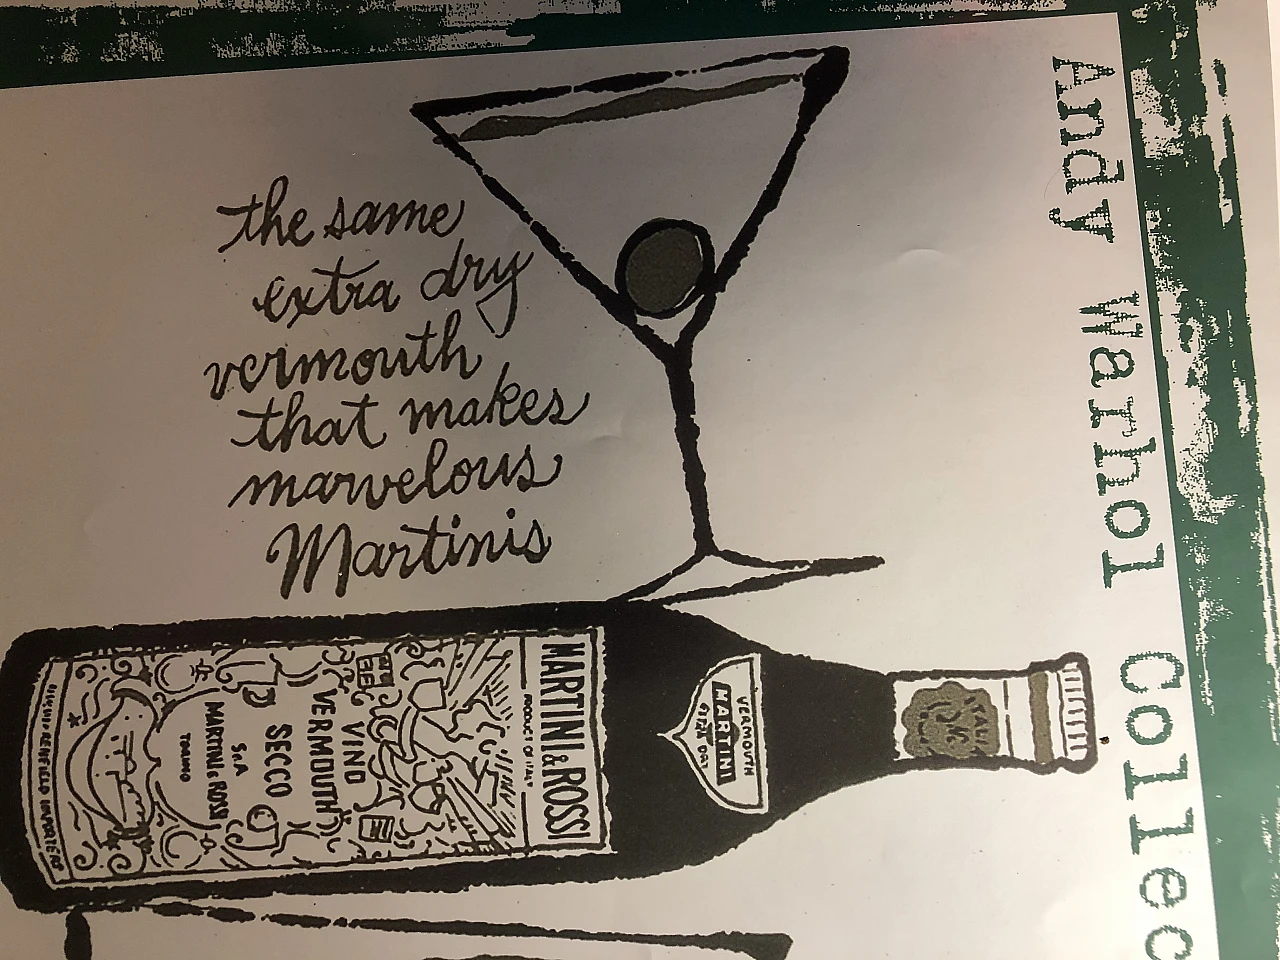 Andy Warhol Collec
the same
extra dry
vermouth
that makes
marvelous
Martinis
VERMOUTH
MARTINI
MARTINI & ROSSI
PRODUCT OF ITALY
VINO
VERMOUTH
SECCO
S.A.
MARTINI & ROSSI
TORINO
RENFIELD IMPORTERS